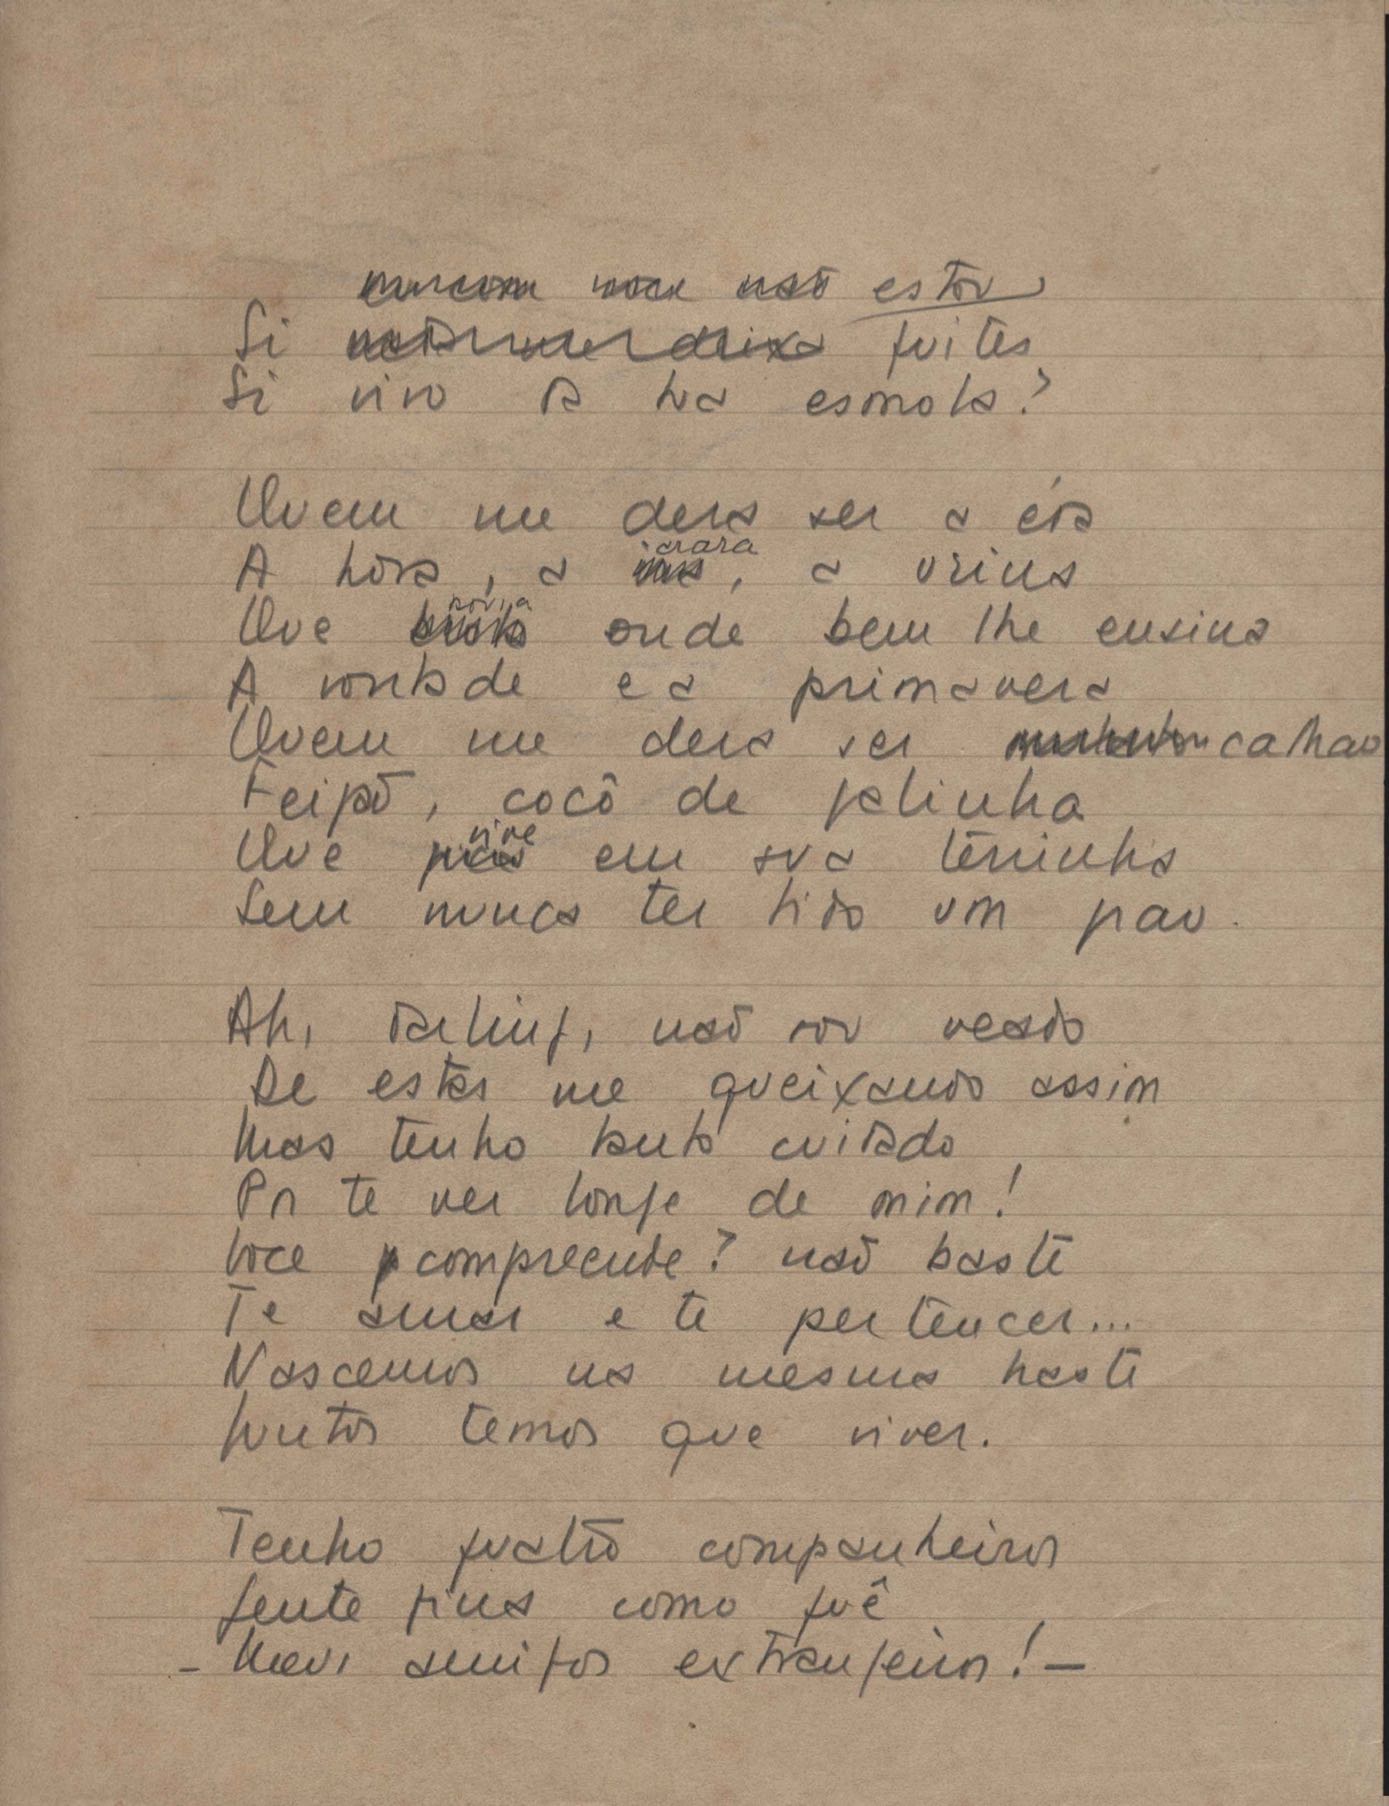 estou
Si fuites
Si vivo da tua esmola?
Quem me dera ser a era
A hora, a arara, a urina
Que onde bem lhe ensina
A vontade e a primavera
Quem me dera ser calhau
Feijão, cocô de galinha
Que vive em sua terrinha
Sem nunca ter tido um pau.
Ah, darling, não sou veado
De estar me queixando assim
Mas tenho tanto cuidado
Por te ver longe de mim!
Voce compreende? não baste
Te amar e te pertencer...
Nascemos na mesma haste
Juntos temos que viver.
Tenho quatro companheiros
Gente fina como quê
- Meus amigos extrangeiros! -